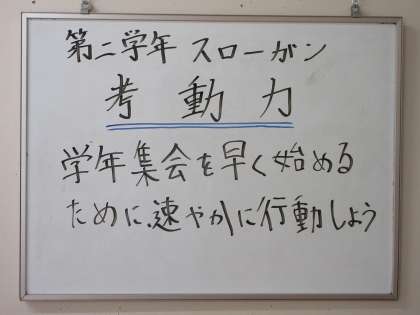 第二学年 スローガン
考動力
学年集会を早く始める
ために、速やかに行動しよう